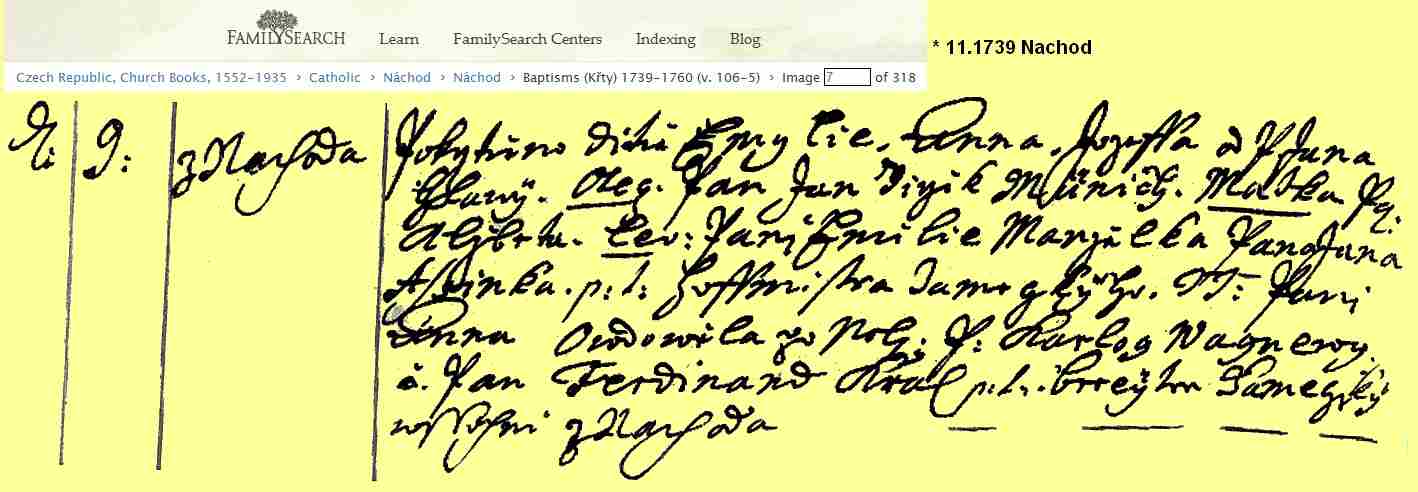 FAMILYSEARCH Learn FamilySearch Centers Indexing Blog
* 11.1739 Nachod
Czech Republic, Church Books, 1552-1935 > Catholic > Náchod > Náchod > Baptisms (Křty) 1739-1760 (v. 106-5) > Image 7 of 318
9: z Nachoda Pokrztieno ditie Emylie. Anna. Jozeffa od P Jana
Oteg. Pan Jan Münich. Matka Pa:
Alzbeta. Lev: Pani Emilie Manzelka Pana Jana
p: t: Hoffmistra Zameckýho. TT: Pani
Anna Owdowiela po Neb: P: Karlog Wagnerog.
a. Pan Ferdinand Kral p: t: Zamegský
wssichni z Nachoda